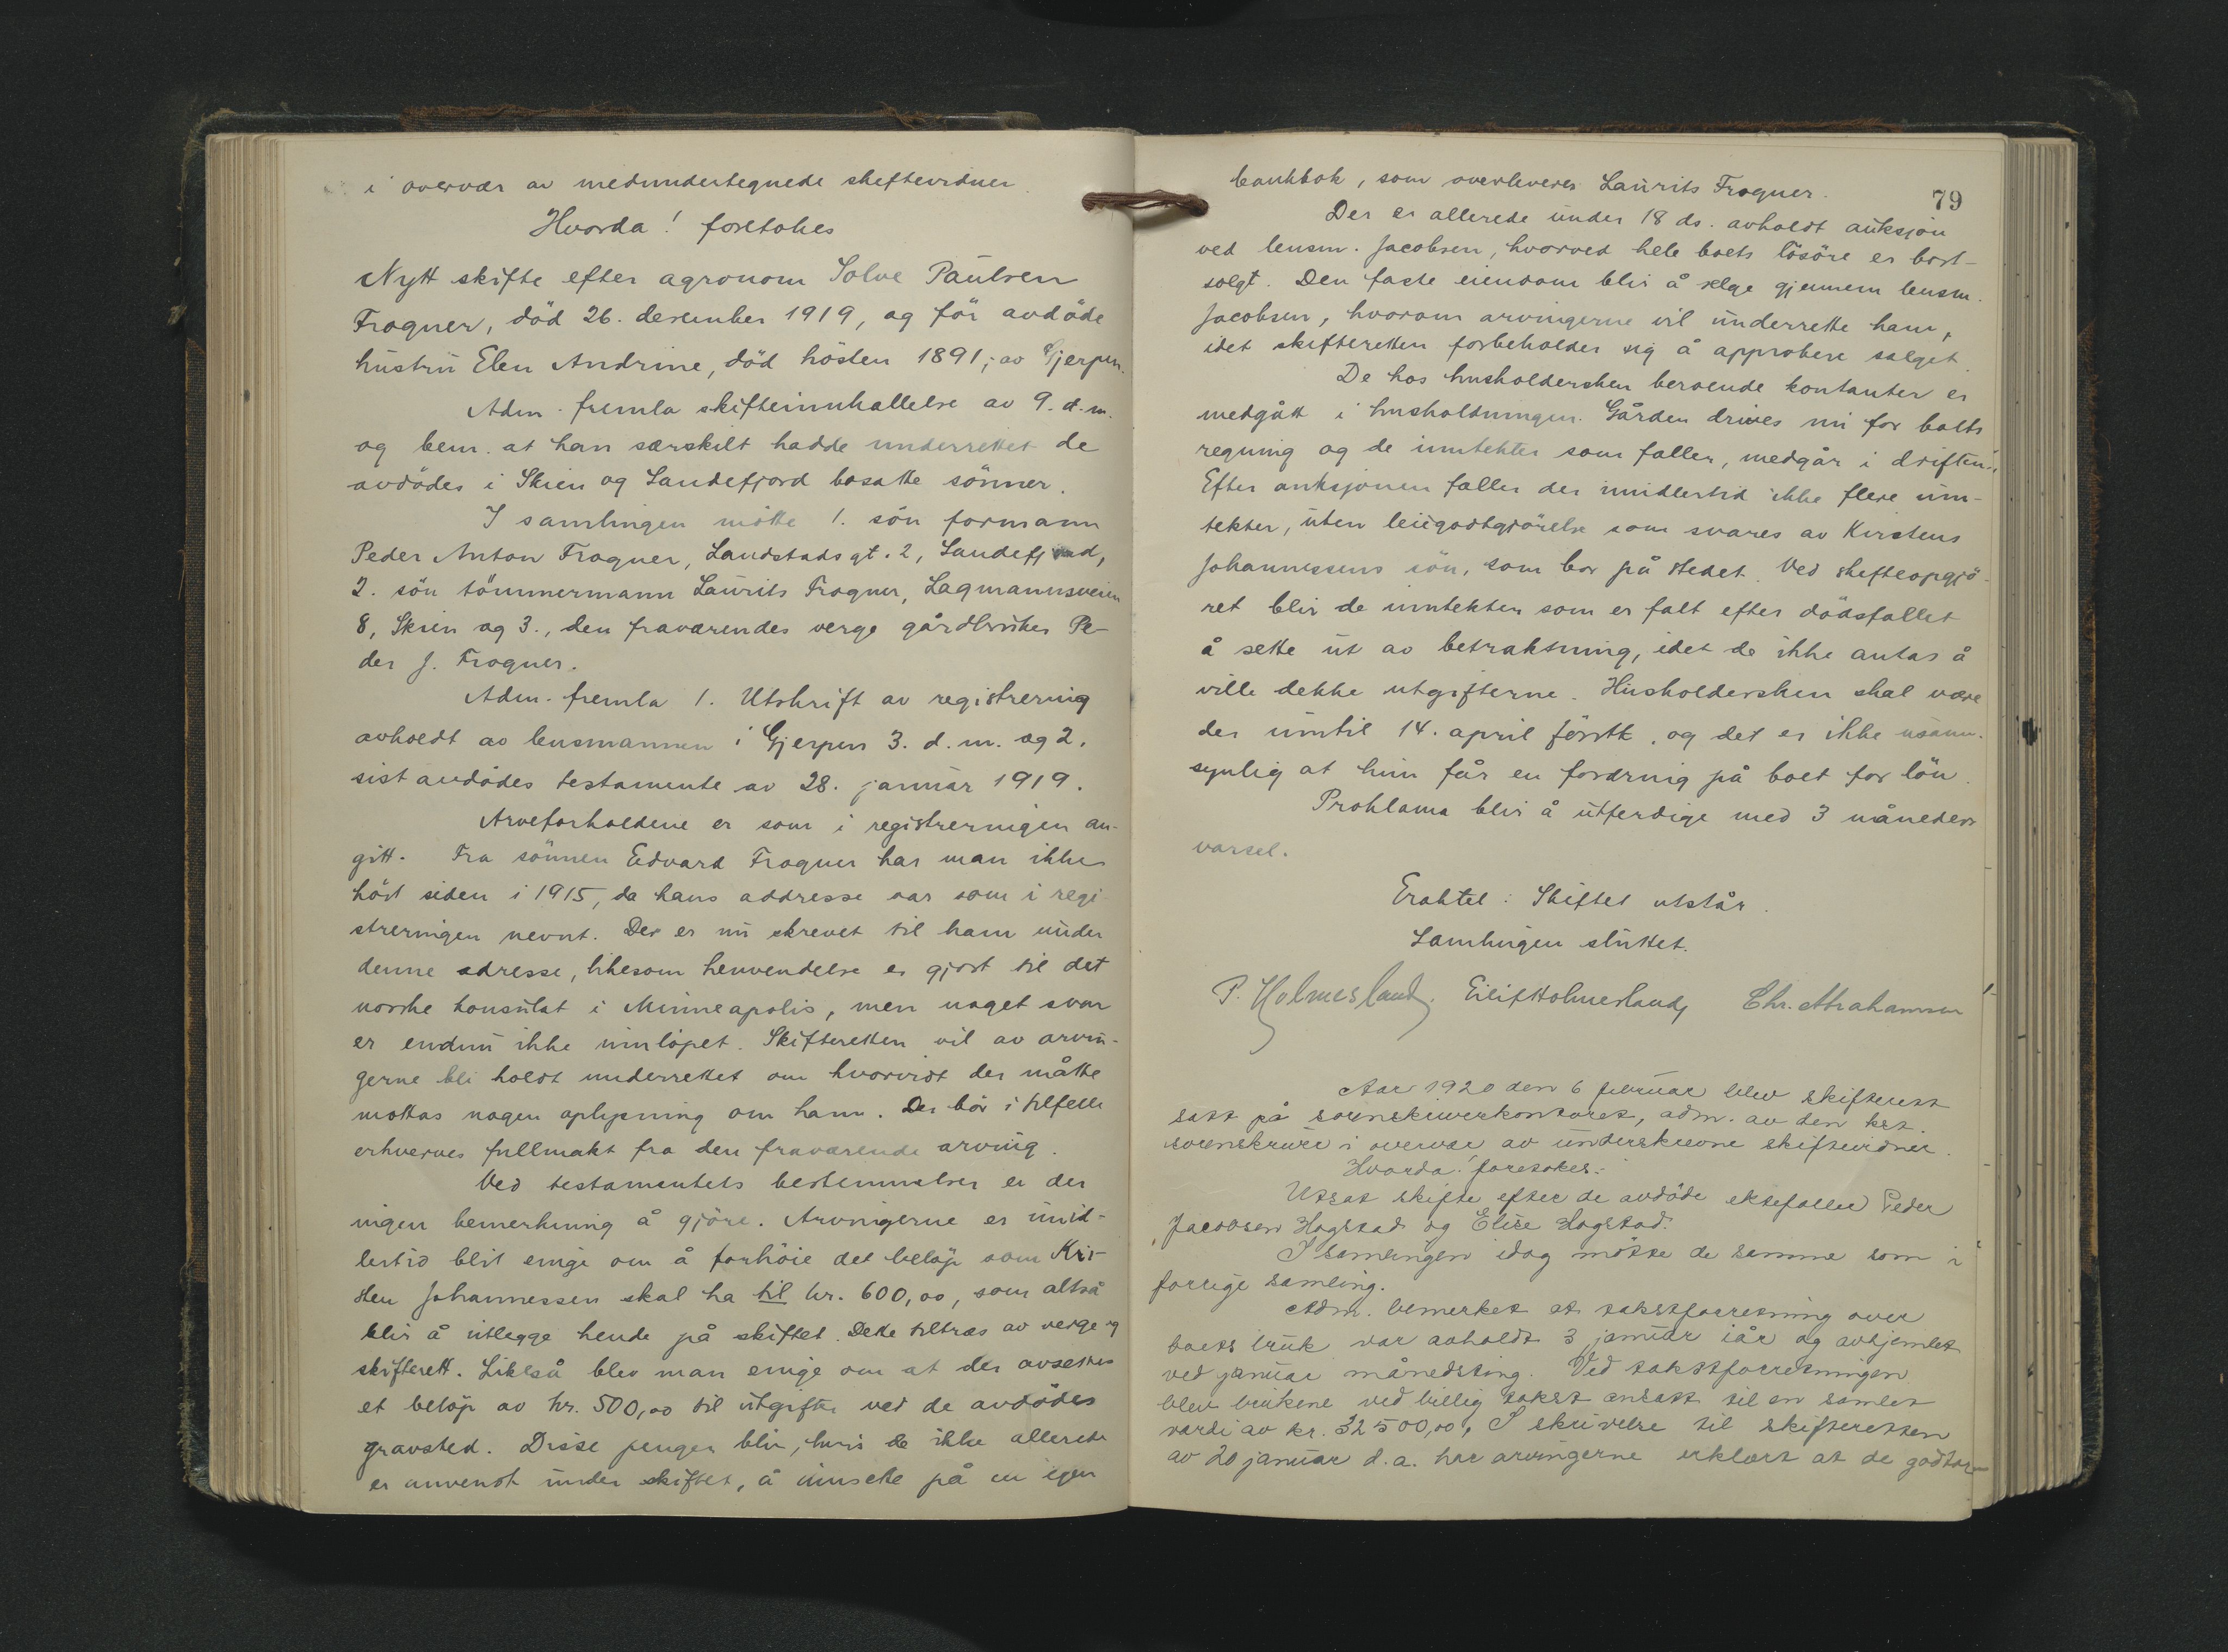 i overvær av medundertegnede skiftevidner.
Hvorda! foretokes
Nytt skifte efter agronom Solve Paulsen
Frogner, död 26. desember 1919, og för avdöde
hustru Elen Andrine, död hösten 1891; av Gjerpen.
Adm. fremla skifteinnkallelse av 9. d.m.
og bem. at han særskilt hadde underrettet de
avdödes i Skien og Sandefjord bosatte sönner.
I samlingen mötte 1. sön formann
Peder Anton Frogner, Landstads gt. 2, Sandefjord,
2. sön tömmermann Laurits Frogner, Lagmannsveien
8, Skien og 3., den fraværendes verge gårdbruker Pe-
der J. Frogner.
Adm. fremla 1. Utskrift av registrering
avholdt av lensmannen i Gjerpen 3. d.m. og 2.
sist avdödes testamente av 28. januar 1919.
Arveforholdene er som i registreringen an-
gitt. Fra sönnen Edvard Frogner har man ikke
hört siden i 1915, da hans addresse var som i regi-
streringen nevnt. Der er nu skrevet til ham under
denne adresse, likesom henvendelse er gjort til det
norske konsulat i Minneapolis, men noget svar
er endnu ikke innlöpet. Skifteretten vil av arvin-
gerne bli holdt underrettet om hvorvidt der måtte
mottas nogen oplysning om ham. Der bör i tilfelle
erhverves fullmakt fra den fraværende arving.
Ved testamentets bestemmelser er der
ingen bemerkning å gjöre. Arvingerne er imid-
lertid blit enige om å forhöie det belöp som Kir-
sten Johannessen skal ha til kr. 600,00, som altså
blir å utlegge hende på skiftet. Dette tiltræs av verge og
skifterett. Likeså blev man enige om at der avsettes
et belöp av kr. 500,00 til utgifter ved de avdödes
gravsted. Disse penger blir, hvis de ikke allerede
er anvendt under skiftet, å innsette på en egen
79
bankbok, som overleveres Laurits Frogner.
Der er allerede under 18 ds. avholdt auksjon
ved lensm. Jacobsen, hvorved hele boets lösöre er bort-
solgt. Den faste eiendom blir å selge gjennem lensm.
Jacobsen, hvorom arvingerne vil underrette ham,
idet skifteretten forbeholder sig å approbere salget.
De hos husholdersken beroende kontanter er
medgått i husholdningen. Gården drives nu for boets
regning og de inntekter som faller, medgår i driften.
Efter auksjonen faller der imidlertid ikke flere inn-
tekter, uten leiegodtgjörelse som svares av Kirstens
Johannessens sön, som bor på stedet. Ved skifteopgjö-
ret blir de inntekter som er falt efter dödsfallet
å sette ut av betraktning, idet de ikke antas å
ville dekke utgifterne. Husholdersken skal være
der inntil 14. april förstk., og det er ikke usann-
synlig at hun får en fordring på boet for lön.
Proklama blir å utferdige med 3 måneders
varsel.
Eraktet: Skiftet utstår.
Samlingen sluttet.
P. Holmesland. Eilif Holmesland, Chr. Abrahamsen
Aar 1920 den 6 februar blev skifterett
satt på sorenskriverkontoret, adm. av den kst.
sorenskriver i overvær av underskrevne skiftevidner.
Hvorda! foretokes:
Utsat skifte efter de avdöde ektefoller Peder
Jacobsen Hogstad og Elise Hogstad.
I samlingen idag mötte de samme som i
forrige samling.
Adm. bemerket at takstforretning over
boets bruk var avholdt 3 januar iår og avhjemlet
ved januar månedsting. Ved takstforretningen
blev brukene ved billig takst ansatt til en samlet
verdi av kr. 32500,00. I skrivelse til skifteretten
av 20 januar d.a. har arvingerne erklært at de godtar